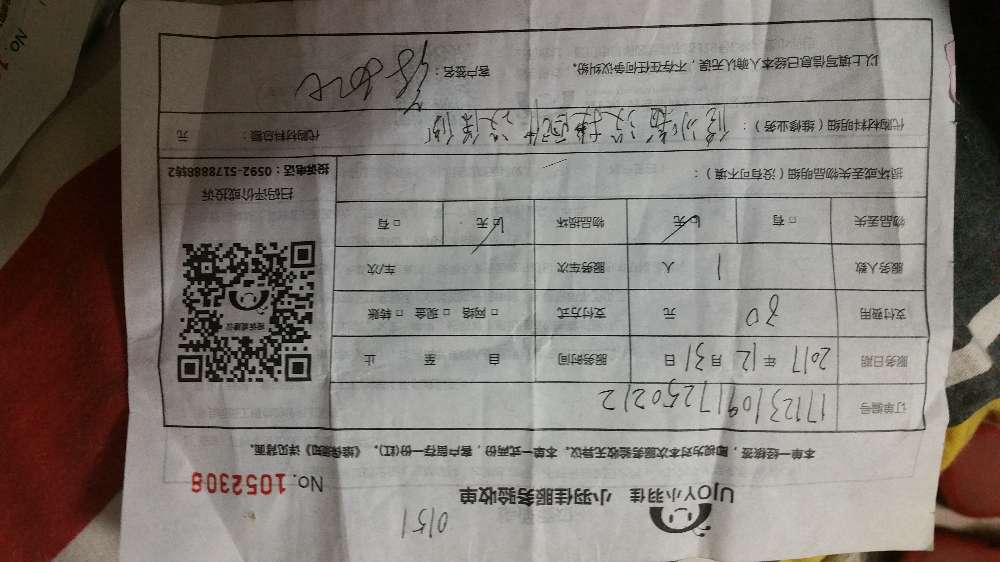 0151
UJOY小羽佳 小羽佳服务验收单
No. 1052308
本单一经核签，即视为对本次服务验收无异议。本单一式两份，客户留存一份(红)。《维保须知》详见背面。
订单编号 17123109172502​12
服务日期 2017 年 12 月 31 日 服务时间 自 至 止
支付费用 80 元 支付方式 □ 网络 □ 现金 □ 转账
服务人数 1 人 服务车次 车/次
物品丢失 □ 有 ☑ 无 物品损坏 ☑ 无 □ 有
投诉或建议
扫码评价或投诉
投诉电话：0592-5178888转2
损坏或丢失物品明细（没有可不填）：
代购材料明细（维修业务）：
代购材料总额： 元
以上填写信息已经本人确认无误，不存在任何争议纠纷。 客户签名：
No.